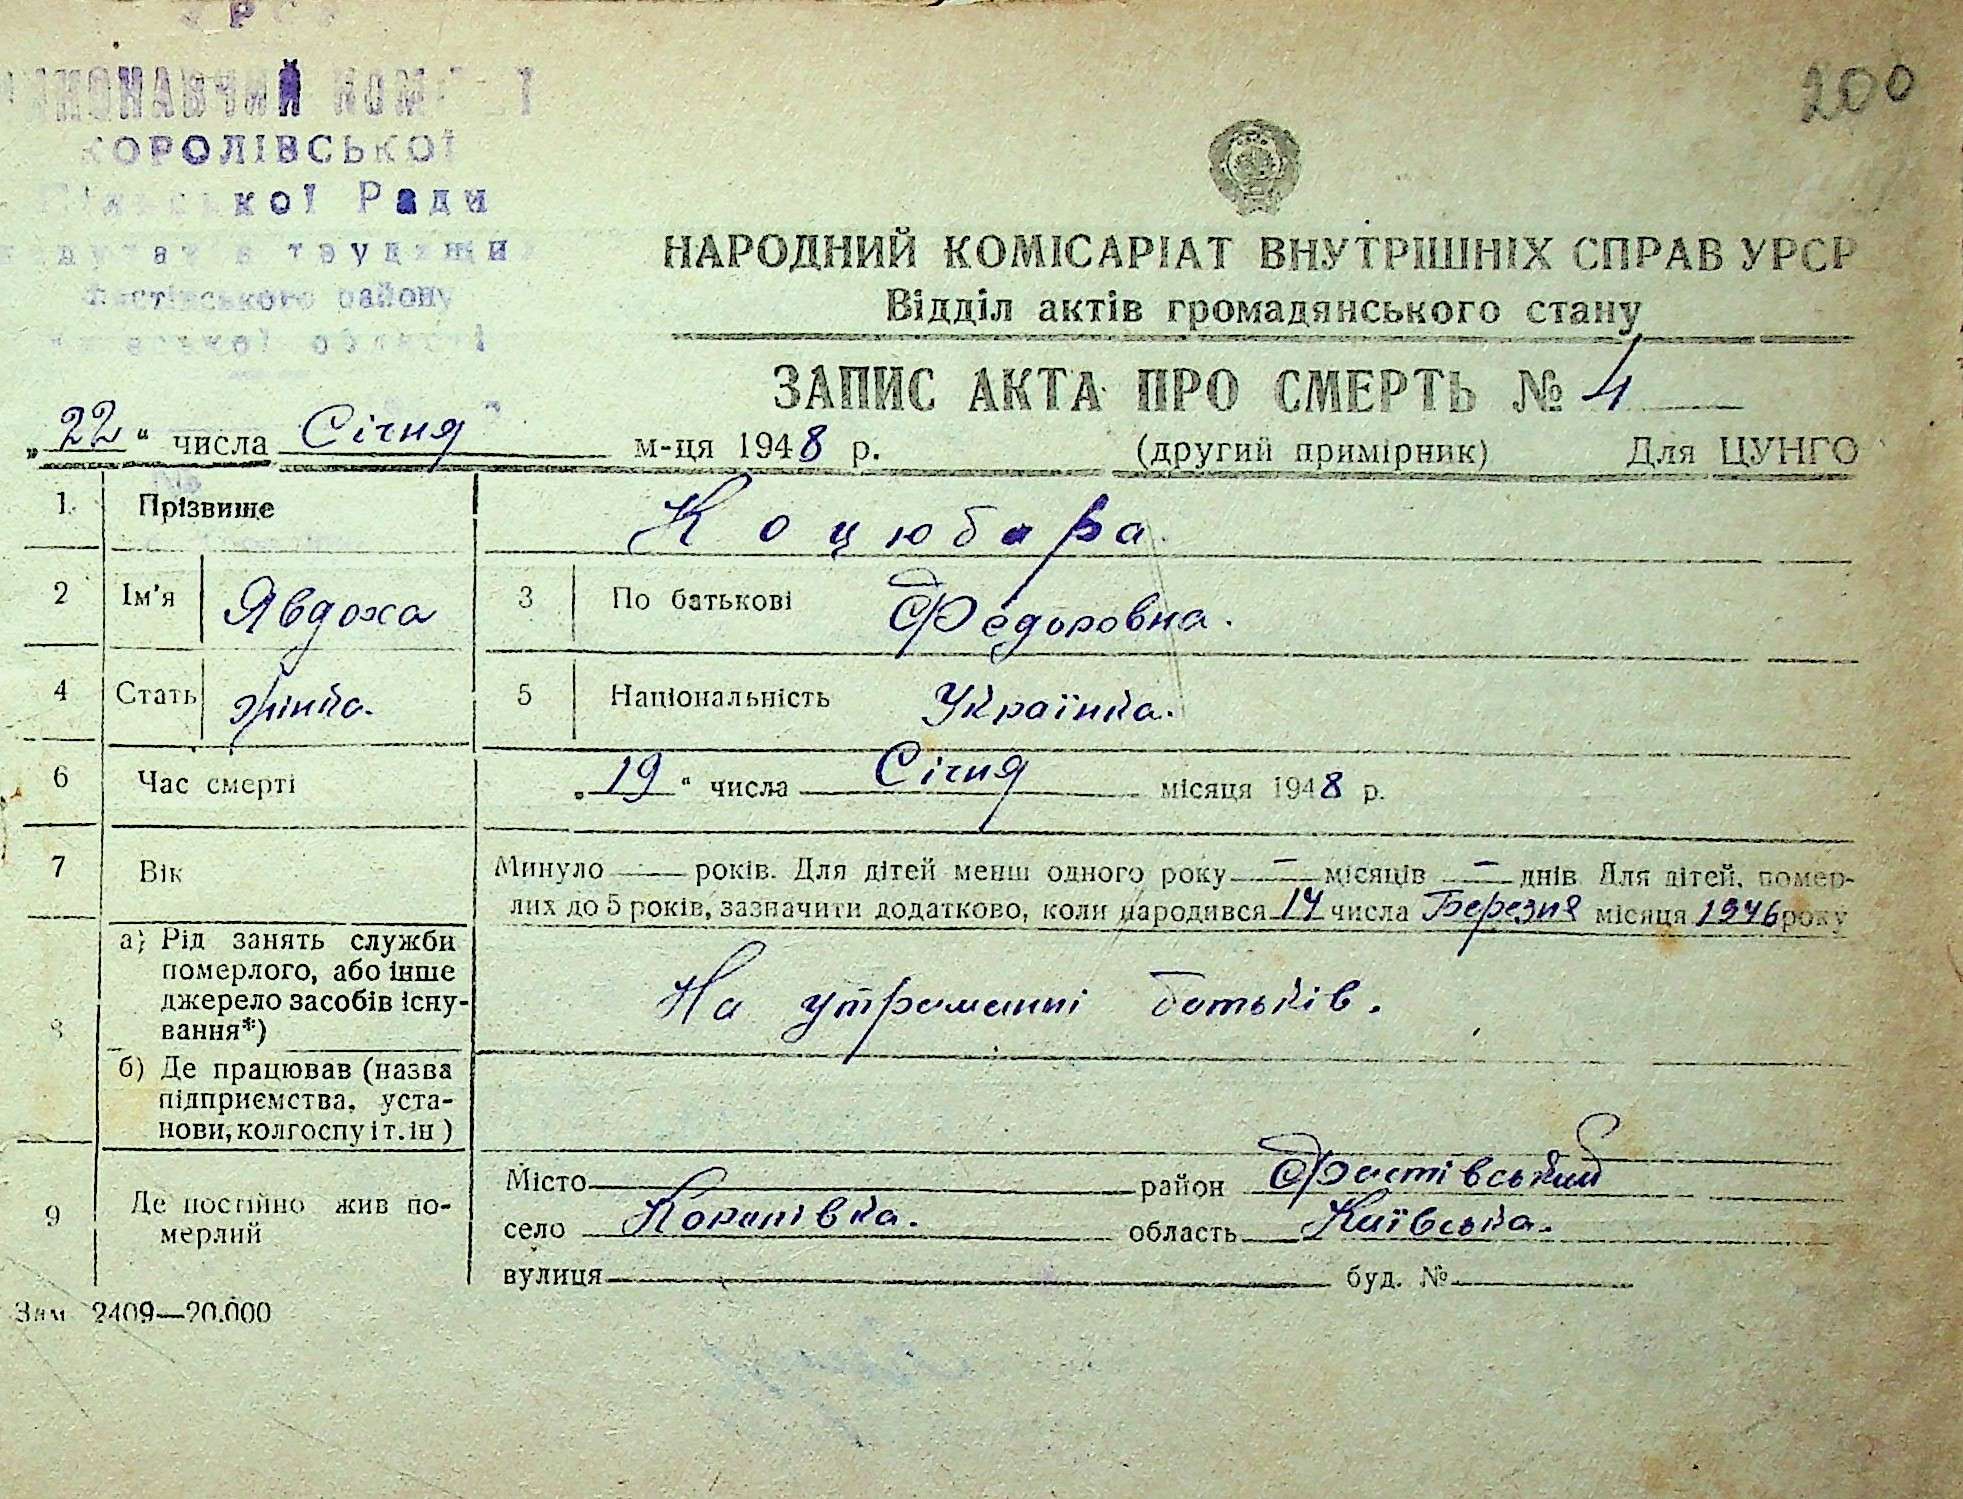 200
КОРОЛІВСЬКОЇ
Ради
району
НАРОДНИЙ КОМІСАРІАТ ВНУТРІШНІХ СПРАВ УРСР
Відділ актів громадянського стану
ЗАПИС АКТА ПРО СМЕРТЬ № 4
„22“ числа Січня м-ця 1948 р. (другий примірник) Для ЦУНГО
1. Прізвище Коцюбара
2 Ім'я Явдоха 3 По батькові Федоровна.
4 Стать жінка. 5 Національність Українка.
6 Час смерті „19“ числа Січня місяця 1948 р.
7 Вік Минуло — років. Для дітей менш одного року — місяців — днів. Для дітей, помер-
лих до 5 років, зазначити додатково, коли народився 14 числа Березня місяця 1946 року
8 а) Рід занять служби
померлого, або інше
джерело засобів існу-
вання*) На утриманні батьків.
б) Де працював (назва
підприємства, уста-
нови, колгоспу і т. ін)
9 Де постійно жив по-
мерлий
Місто район Фастівський
село Королівка. область Київська.
вулиця буд. №
Зам. 2409—20.000